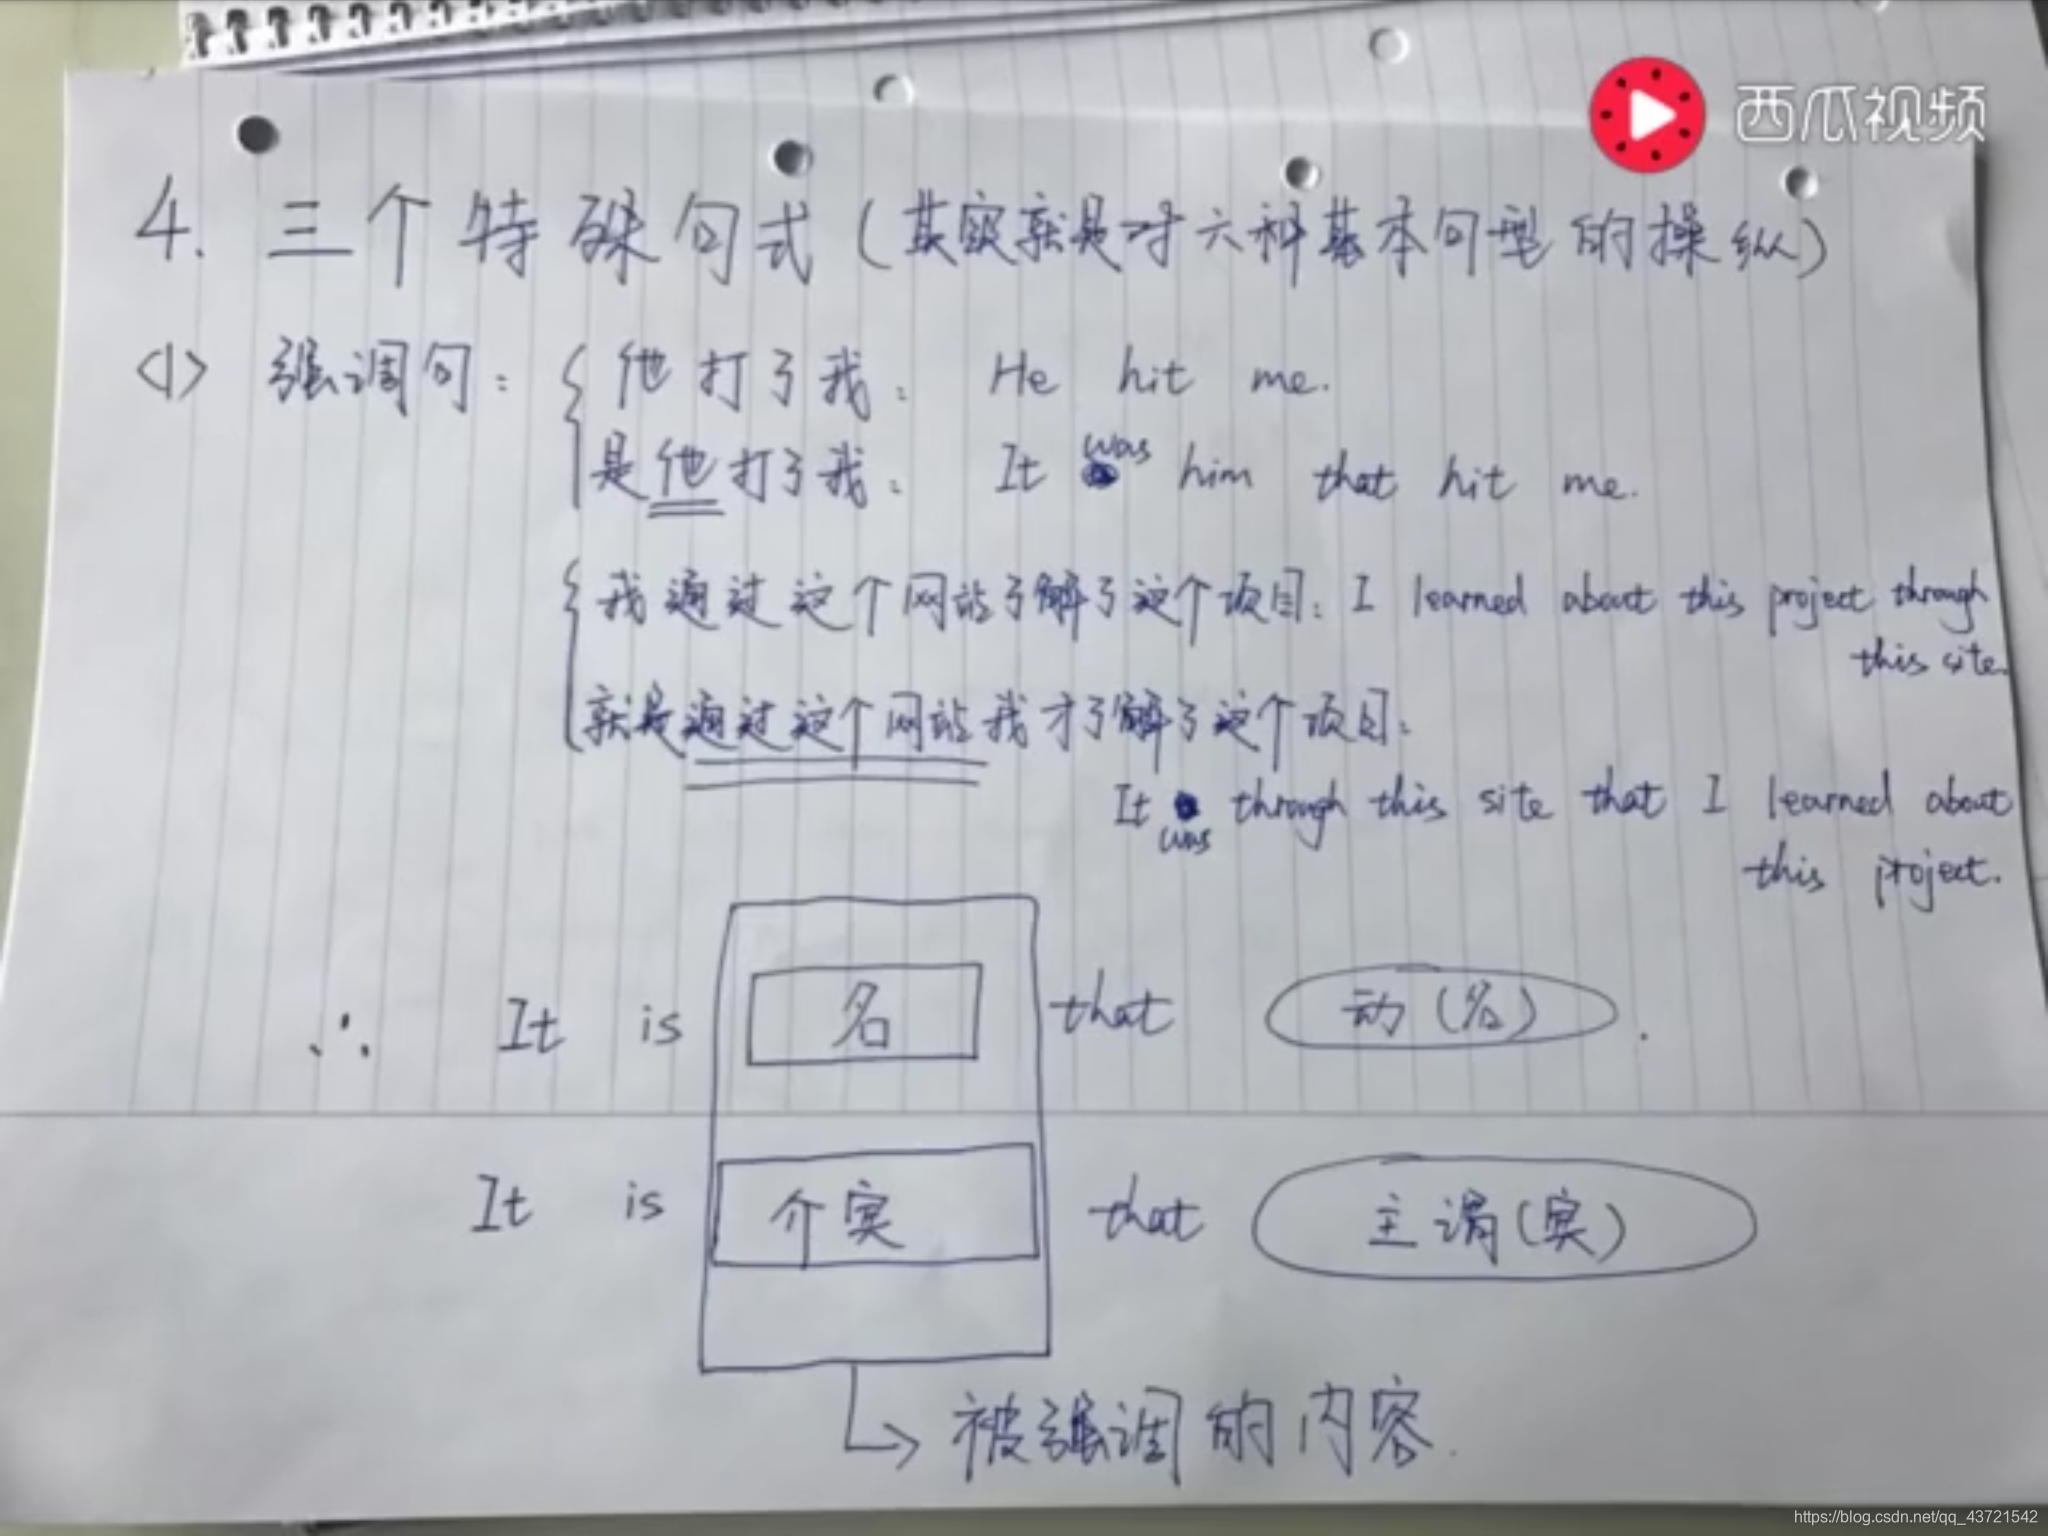 西瓜视频
4. 三个特殊句式（其实就是对六种基本句型的操纵）
<1> 强调句： 他打了我： He hit me.
是他打了我： It was him that hit me.
我通过这个网站了解了这个项目： I learned about this project through
this site.
就是通过这个网站我才了解了这个项目：
It was through this site that I learned about
this project.
∴ It is 名 that 动（名）.
It is 介宾 that 主谓（宾）
被强调的内容.
https://blog.csdn.net/qq_43721542